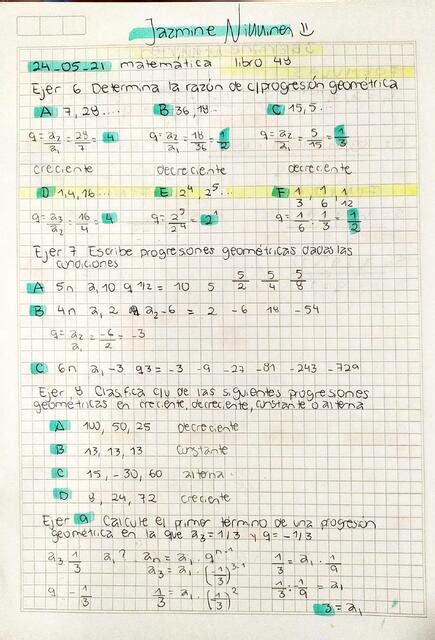 Jazmine
24-05-21 matemática libro 48
Ejer 6 Determina la razón de c/progresión geométrica
A 7, 28... B 36, 18... C 15, 5...
q = a2/a1 = 28/7 = 4 q = a2/a1 = 18/36 = 1/2 q = a2/a1 = 5/15 = 1/3
creciente decreciente decreciente
D 1, 4, 16... E 2^4, 2^5... F 1/3, 1/6, 1/12
q = a3/a2 = 16/4 = 4 q = 2^5/2^4 = 2^1 q = 1/6 : 1/3 = 1/2
Ejer 7 Escribe progresiones geométricas dadas las
condiciones
A 5n a1 10 q 1/2 = 10 5 5/2 5/4 5/8
B 4n a1 2 a2 -6 = 2 -6 18 -54
q = a2/a1 = -6/2 = -3
C 6n a1 -3 q 3 = -3 -9 -27 -81 -243 -729
Ejer 8 Clasifica c/u de las siguientes progresiones
geométricas en creciente, decreciente, constante o alterna
A 100, 50, 25 decreciente
B 13, 13, 13 constante
C 15, -30, 60 alterna
D 8, 24, 72 creciente
Ejer 9 Calcule el primer término de una progresión
geométrica en la que a3 = 1/3 y q = -1/3
a3 1/3 a1? an = a1 · q^n-1 1/3 = a1 · 1/9
a3 = a1 · (-1/3)^3-1
q - 1/3 1/3 = a1 · (-1/3)^2 1/3 : 1/9 = a1
3 = a1